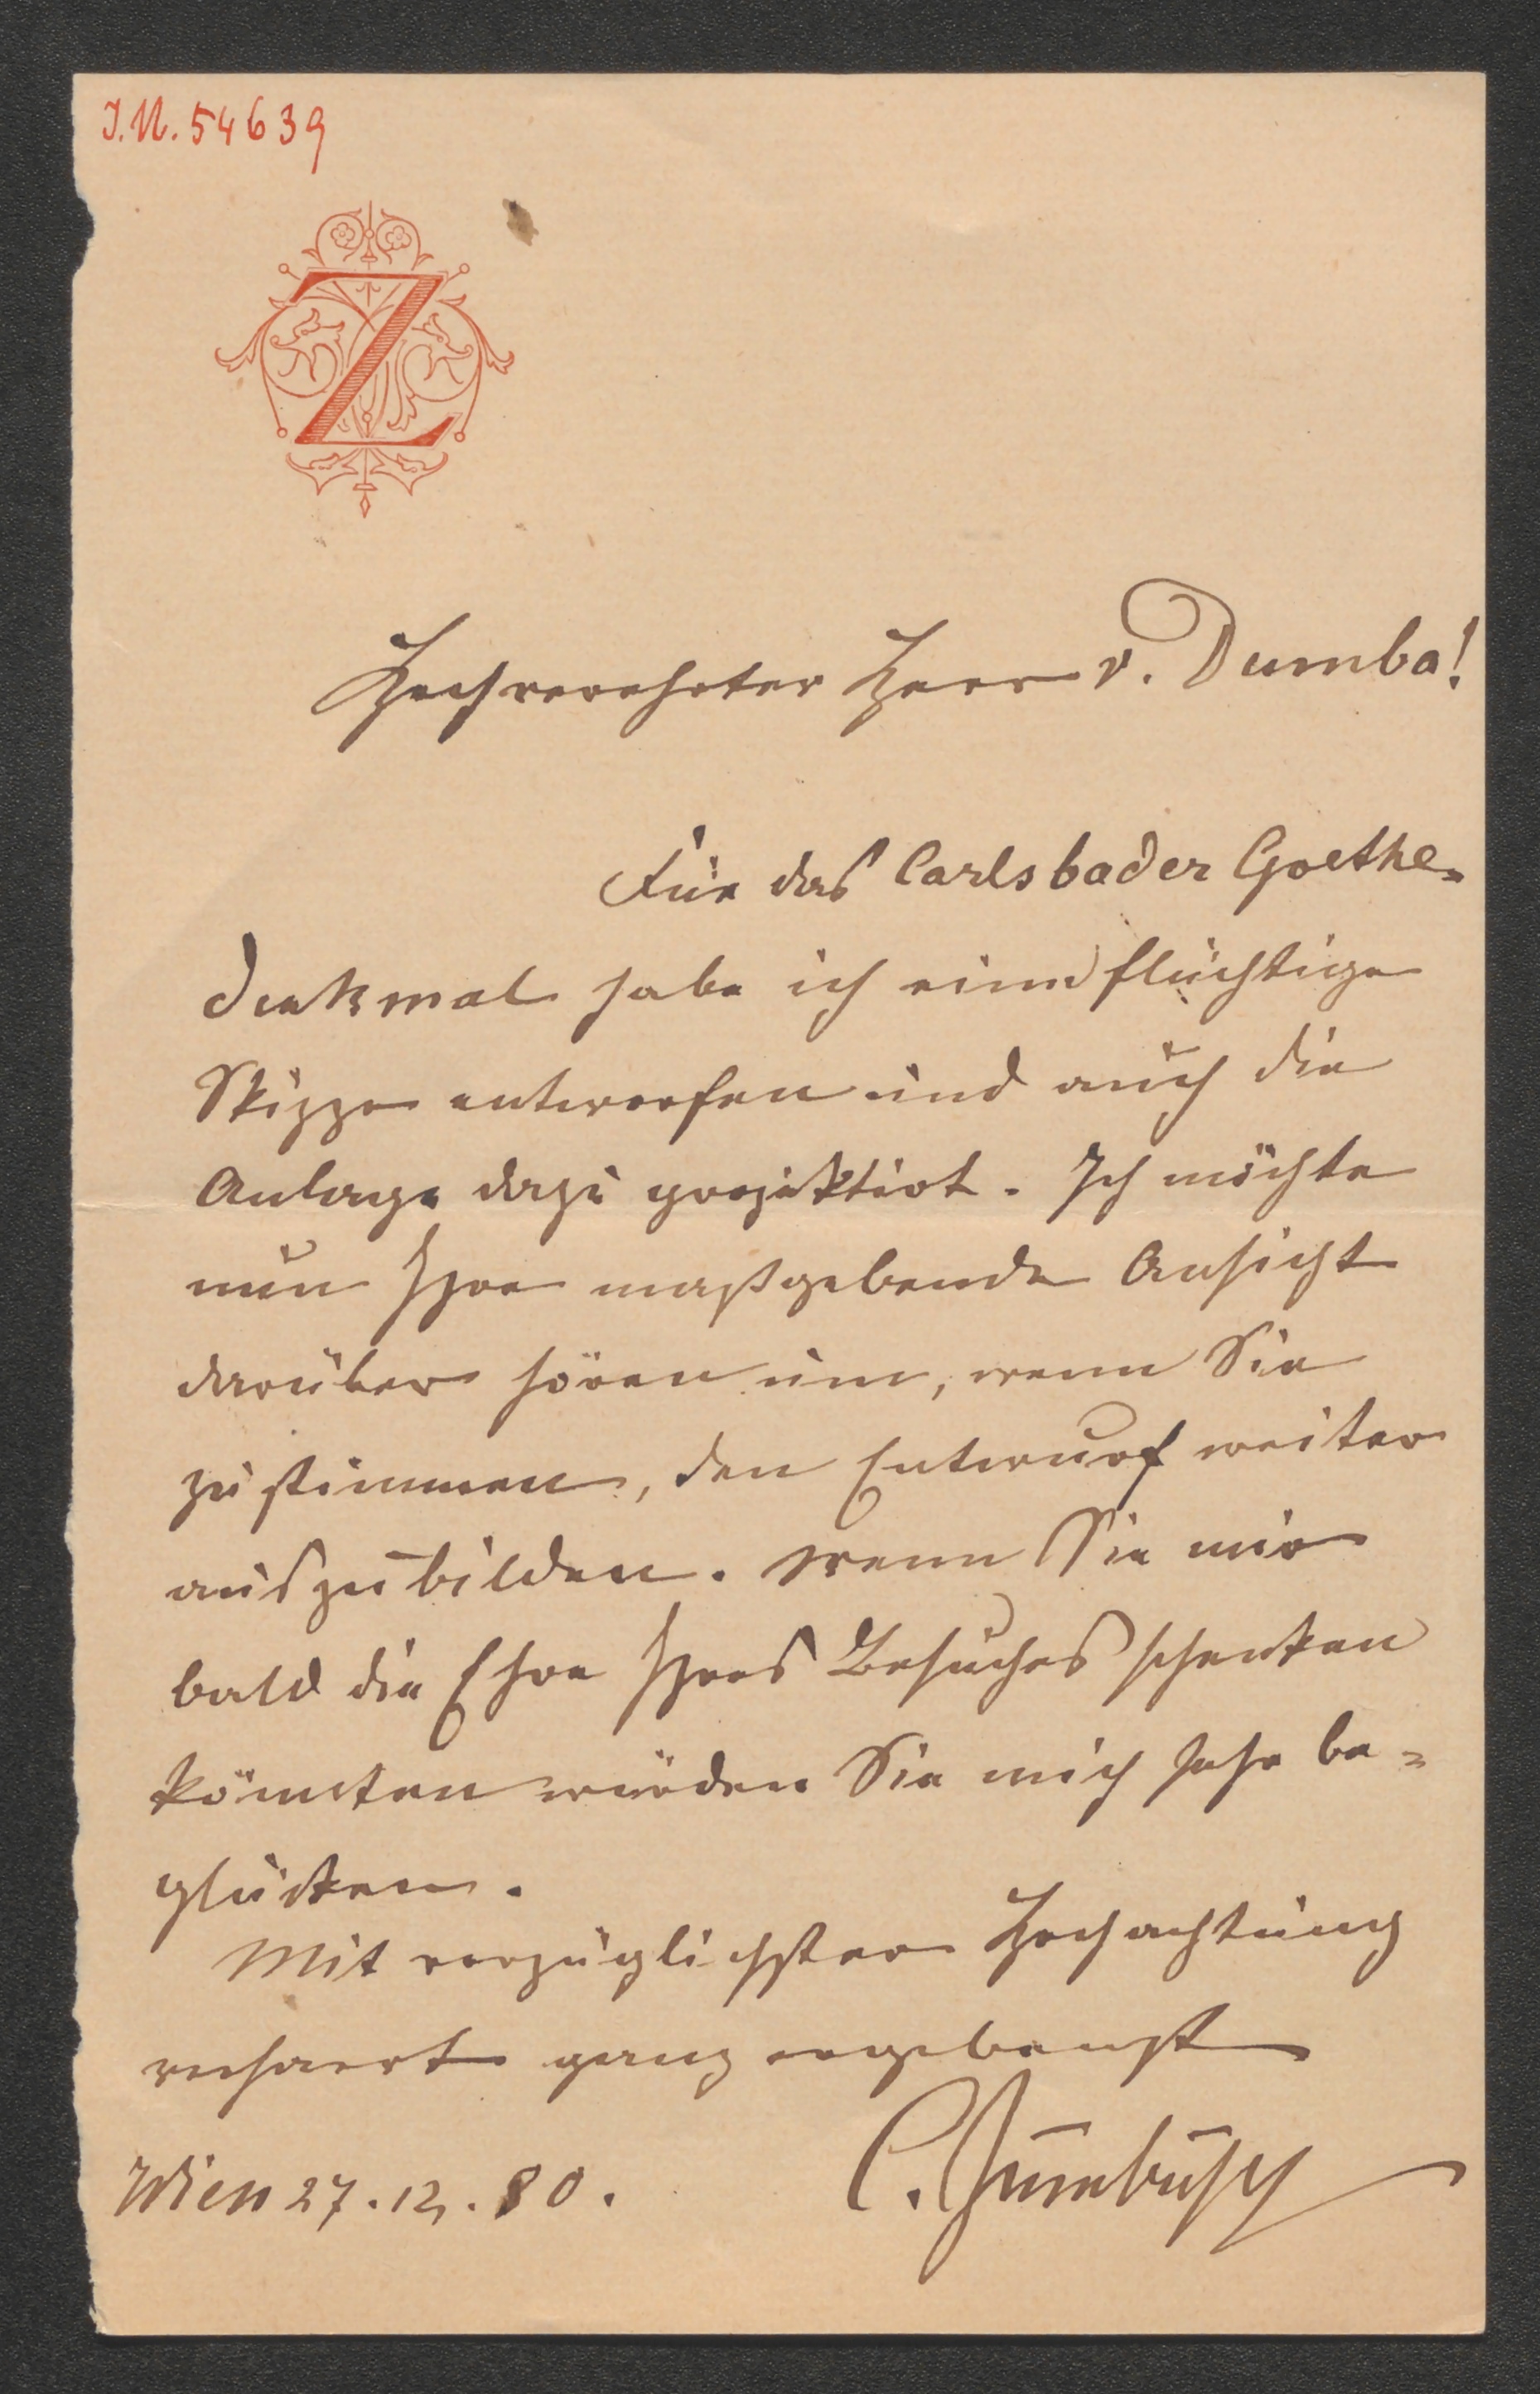 J.N. 54639
Z
Hochverehrter Herr v. Dumba!
Für das Carlsbader Goethe-
denkmal habe ich eine flüchtige
Skizze entworfen und auch die
Anlage dazu projektirt. Ich möchte
nun Ihre maßgebende Ansicht
darüber hören um, wenn Sie
zustimmen, den Entwurf weiter
auszubilden. Wenn Sie mir
bald die Ehre Ihres Besuches schenken
könnten würden Sie mich sehr be-
glücken.
Mit vorzüglichster Hochachtung
verharrt ganz ergebenst
Wien 27.12.80. C. Zumbusch